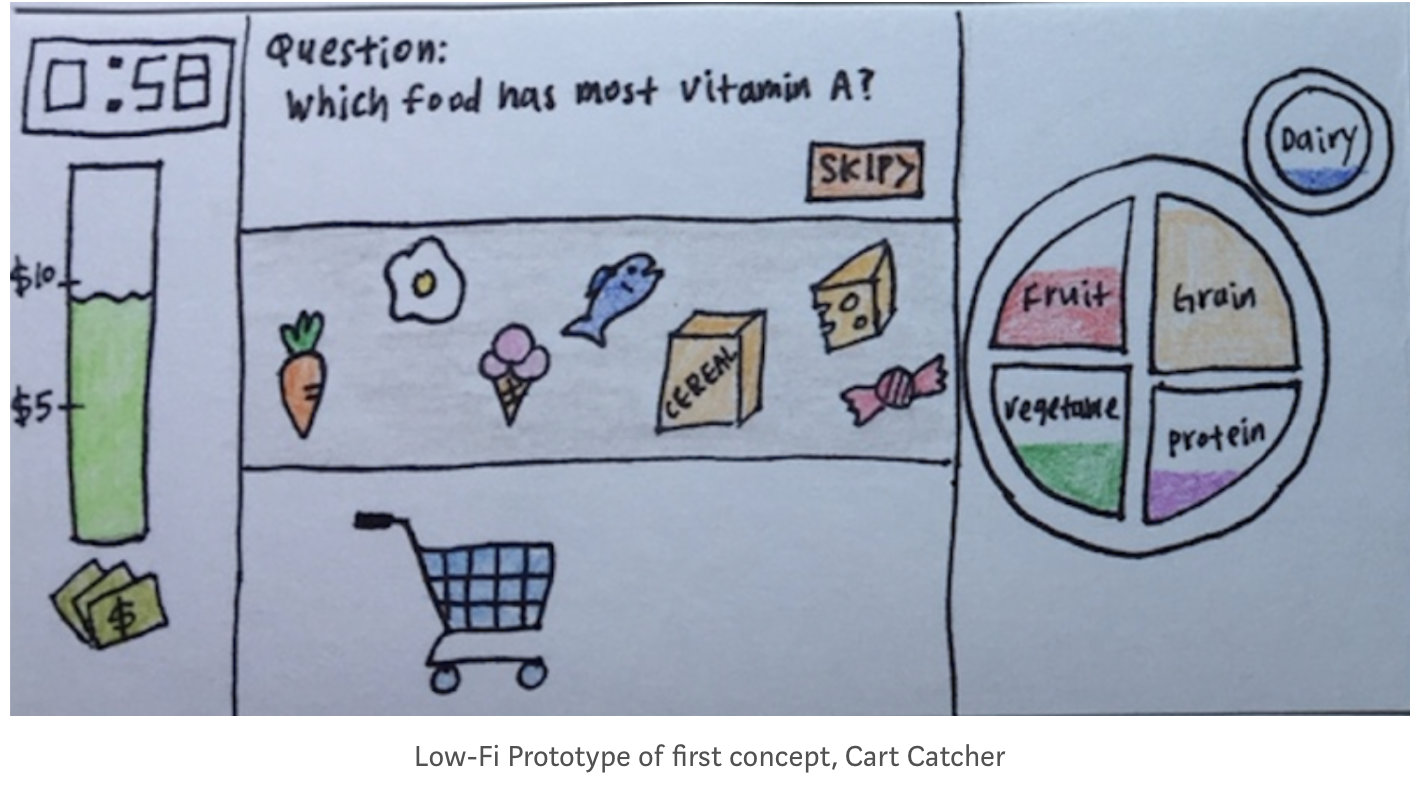 0:58
Question:
Which food has most vitamin A?
SKIP>
$10
$5
$
CEREAL
Dairy
Fruit
Grain
vegetable
protein
Low-Fi Prototype of first concept, Cart Catcher